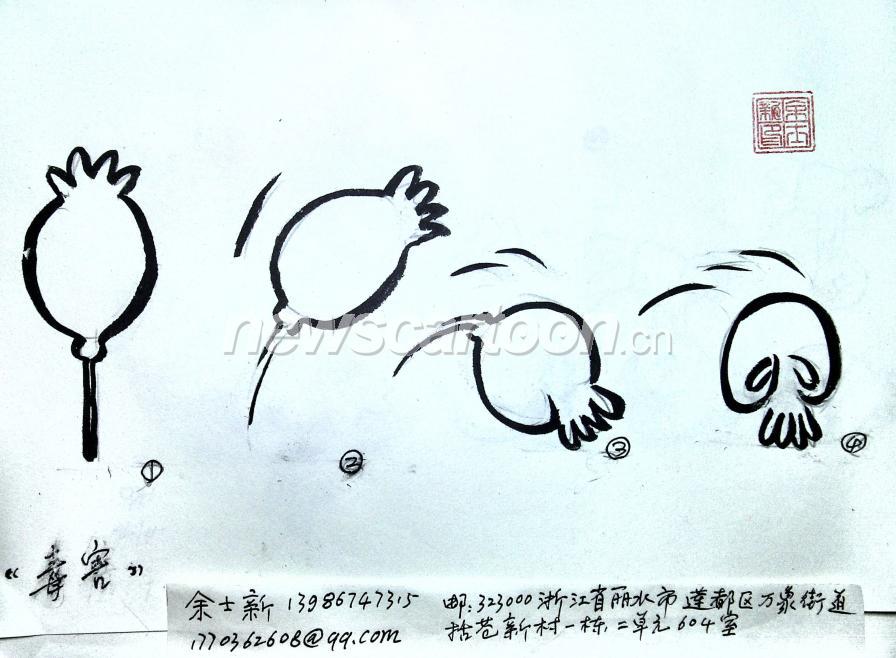 余士新印
newscartoon.cn
①
②
③
④
“毒害”
余士新 13986747315
1770362608@qq.com
邮:323000 浙江省丽水市莲都区万象街道
括苍新村一栋,二单元604室